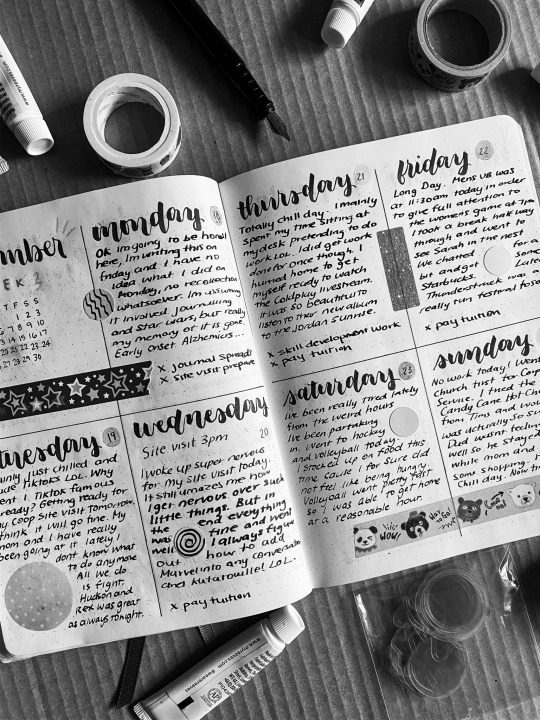 mber
WEEK 3
T F S S
monday 18
Ok Im going to be honest
here, Im writing this on
friday and I have no
idea what I did on
Monday, no recollection
whatsoever. Im assuming
it involved journalling
and Star Wars, but really
my memory of it is gone.
Early onset Alzheimers...
x Journal spreads
x Site visit prepare
tuesday 19
just chilled and
TikToks LOL. Why
I Tiktok famous
already? Getting ready for
my Coop Site visit tomorrow,
think it will go fine. My
mom and I have really
been going at it lately I
dont know what
to do anymore
All we do
is fight.
Hudson and
Rex was great
as always tonight.
wednesday 20
Site visit 3pm
I woke up super nervous
for my site visit today.
It still amazes me how
I get nervous over such
little things. But in
the end everything
was fine and went
well. I always figure
out how to add
Marvel into any conversation
and Ratatouille! LOL.
x pay tuition
thursday 21
Totally chill day. I mainly
spent my time sitting at
my desk pretending to do
work LOL. I did get work
done for once though. I
hurried home to get
myself ready to watch
the Coldplay livestream.
It was so beautiful to
listen to their new album
to the Jordan sunrise.
x skill development work
x pay tuition
friday 22
Long Day. Mens VB was
at 11:30am today in order
to give full attention to
the womens game at 7pm
I took a break half way
through and went to
see Sarah in the nest
We chatted for a
bit and got
Starbucks.
Thunderstruck was a
really fun festival too
x pay tuition
saturday 23
Ive been really tired lately
from the weird hours
Ive been partaking
in. Went to hockey
and volleyball today.
I stocked up on food this
time cause I for sure did
not feel like being hungry.
Volleyball went pretty fast
so I was able to get home
at a reasonable hour.
WOW!
sunday
No work today! Went
Church first for Corp
Service. I tried the
Candy Cane Hot Cho
from Tims and
was actually so
Dad wasnt feeling
well so he stayed
while mom and
some shopping.
Chill day. Now
www.myreeves.com